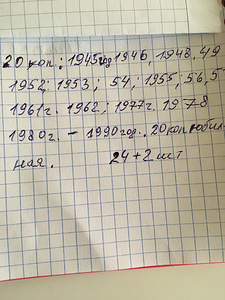 20 коп: 1945год 1946, 1948. 49
1952; 1953; 54; 1955; 56, 5
1961г. 1962; 1977г. 1978
1980г. - 1990год. 20 коп юбил-
ная. 24+2 шт